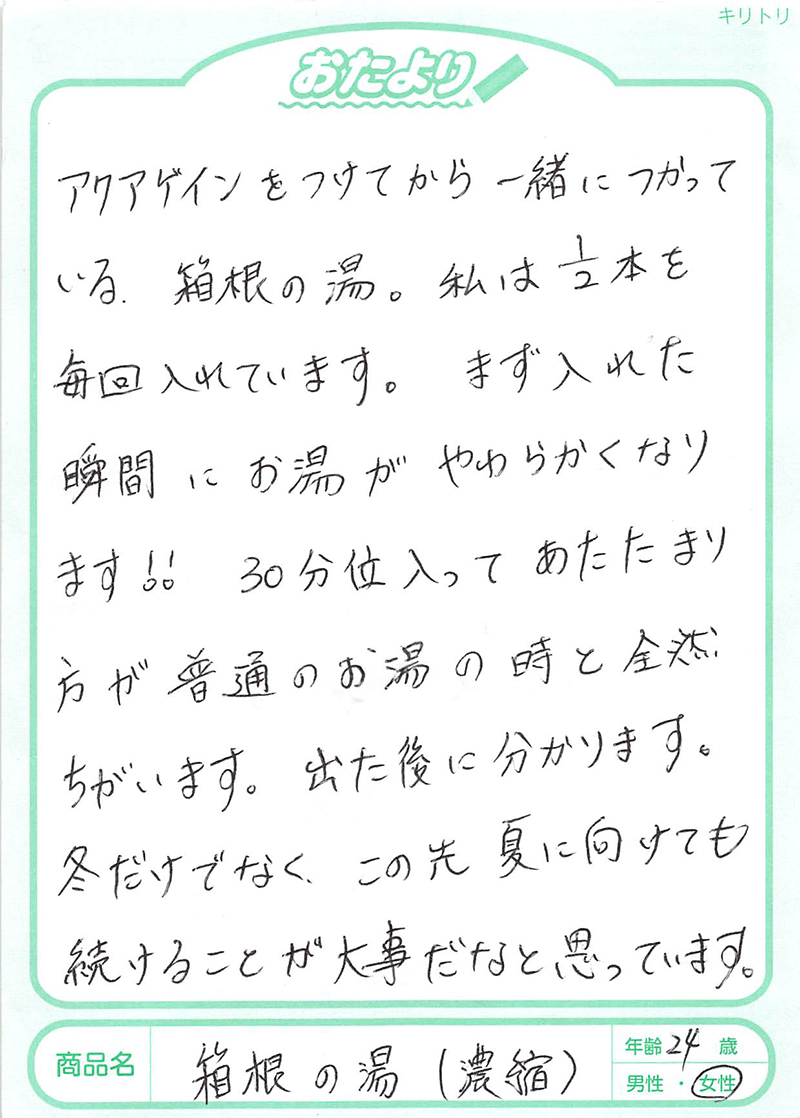 キリトリ
おたより
アクアゲインをつけてから一緒につかって
いる、箱根の湯。私は1/2本を
毎回入れています。まず入れた
瞬間にお湯がやわらかくなり
ます!! 30分位入ってあたたまり
方が普通のお湯の時と全然
ちがいます。出た後に分かります。
冬だけでなく、この先夏に向けても
続けることが大事だなと思っています。
商品名 箱根の湯(濃縮) 年齢24歳
男性・女性